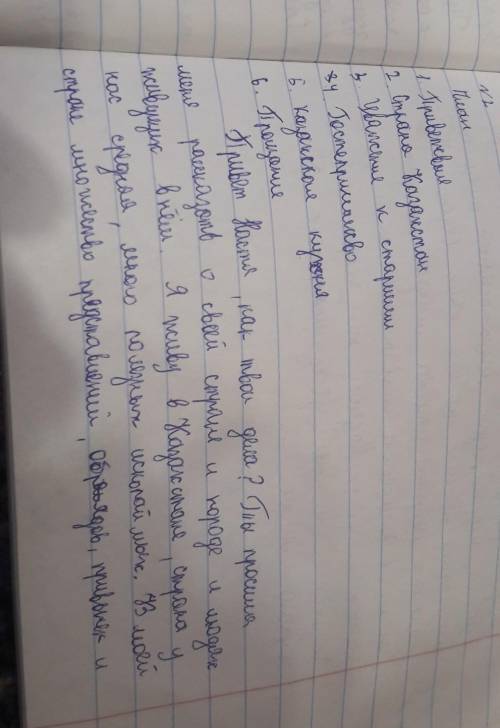 №2
План
1. Приветствие
2. Страна Казахстан
3. Уважение к старшим
4. Гостеприимство
5. Казахская кухня
6. Прощание
Привет Настя, как твои дела? Ты просила
меня рассказать о своей стране и народе и людях
живущих в нём. Я живу в Казахстане, страна у
нас средняя, много полезных ископаймых. Из моей
стране множество представлений, обряды, привычек и